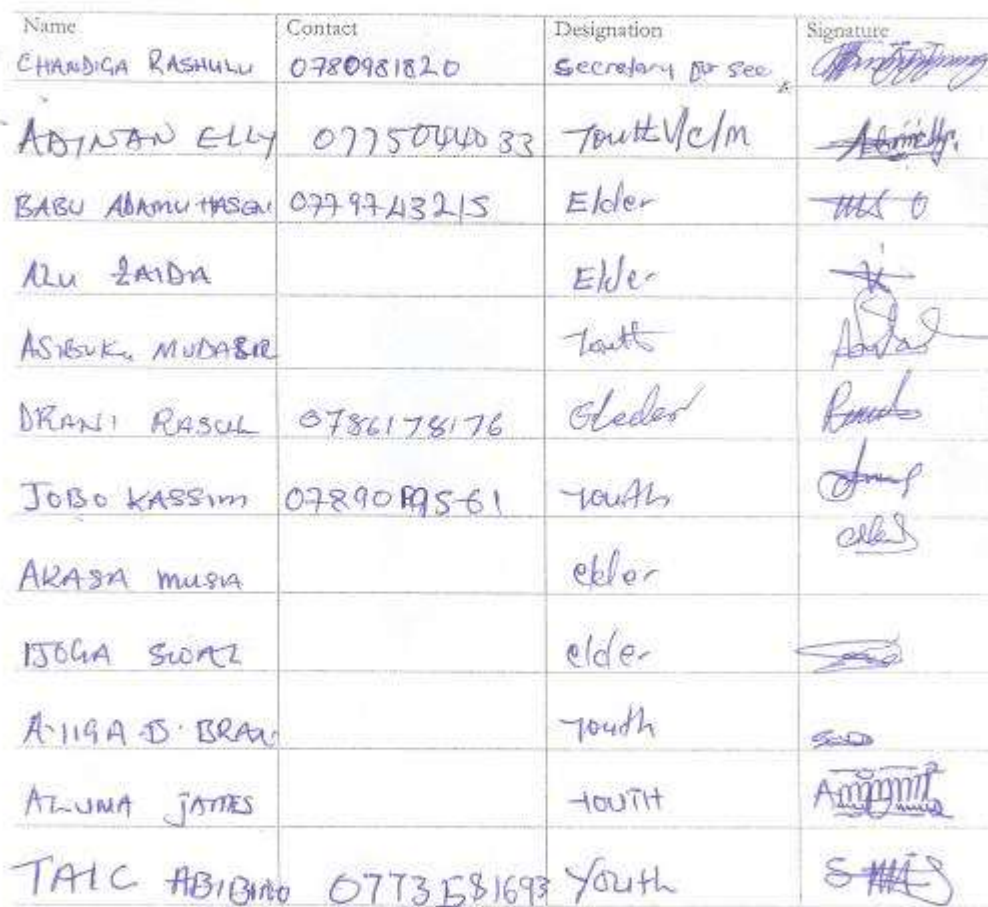 Name Contact Designation Signature
CHANDIGA RASHULU 0780981820 Secretary for sec
ADINAN ELLY 0775044033 Youth V/c/m
BABU ADAMU HASEN 0779743215 Elder
ALU ZAIDA Elder
ASIBUKU MUDASIR Youth
DRANI RASUL 0786178176 Gleder
JOBO KASSIM 07890 61 Youth
AKASA MUSIA elder
IJOGA SWALI elder
B. BRAN Youth
ALUMA JAMES YOUTH
TAIC ABIBIRO 0773581693 Youth